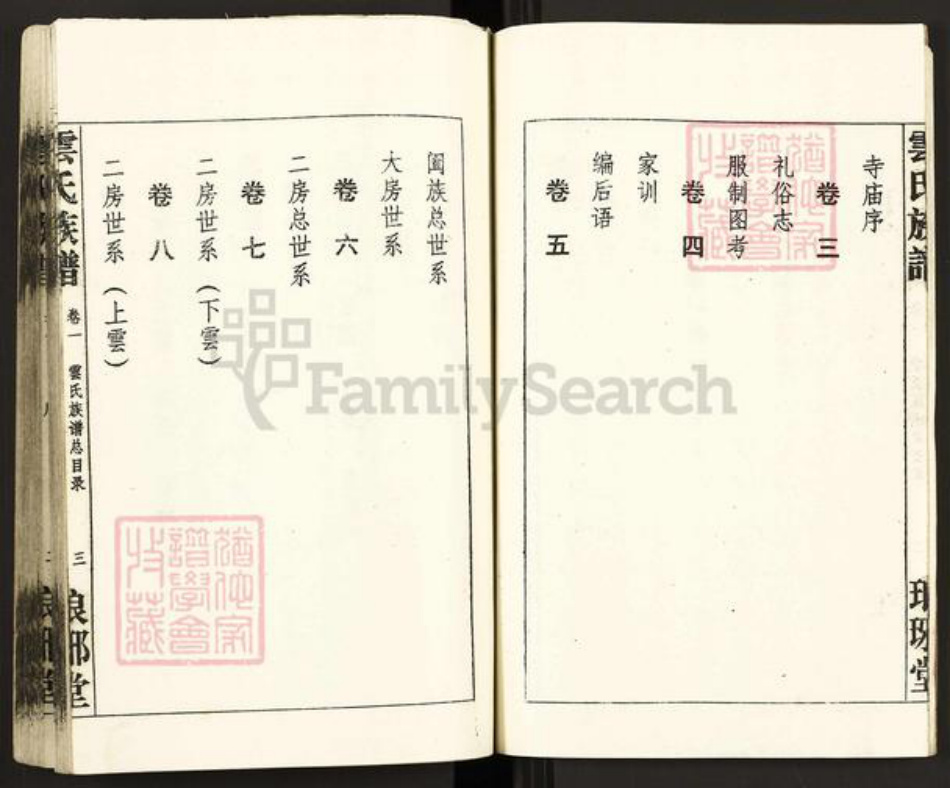 寺庙序
卷三
礼俗志
服制图考
卷四
家训
编后语
卷五
阖族总世系
大房世系
卷六
二房总世系
卷七
二房世系（下雲）
卷八
二房世系（上雲）
雲氏族谱
卷一
雲氏族谱总目录
三
琅邪堂
猶他家
譜學會
收藏
猶他家
譜學會
收藏
FamilySearch